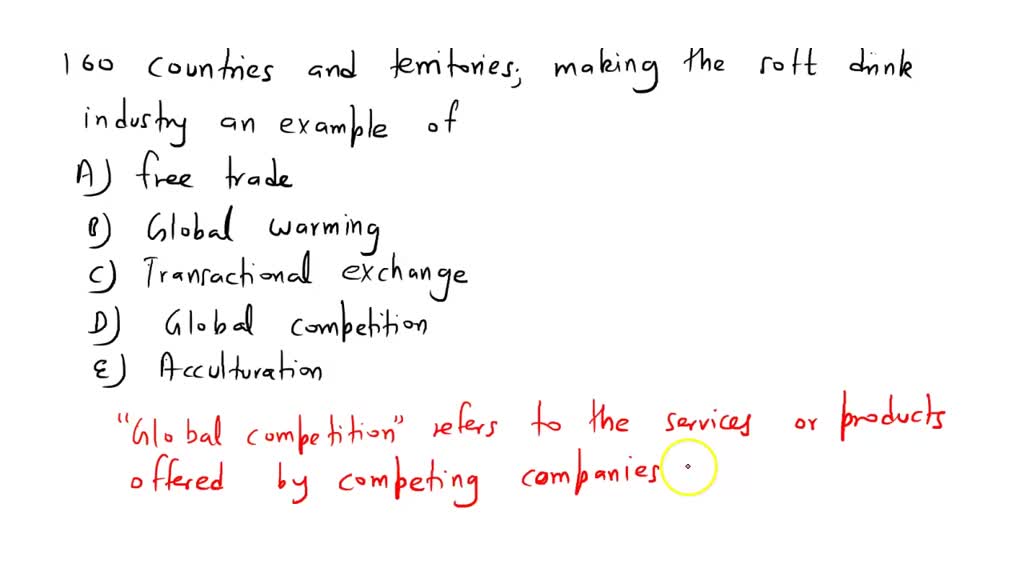 160 countries and territories; making the soft drink
industry an example of
A) free trade
B) Global warming
C) Transactional exchange
D) Global competition
E) Acculturation
"Global competition" refers to the services or products
offered by competing companies